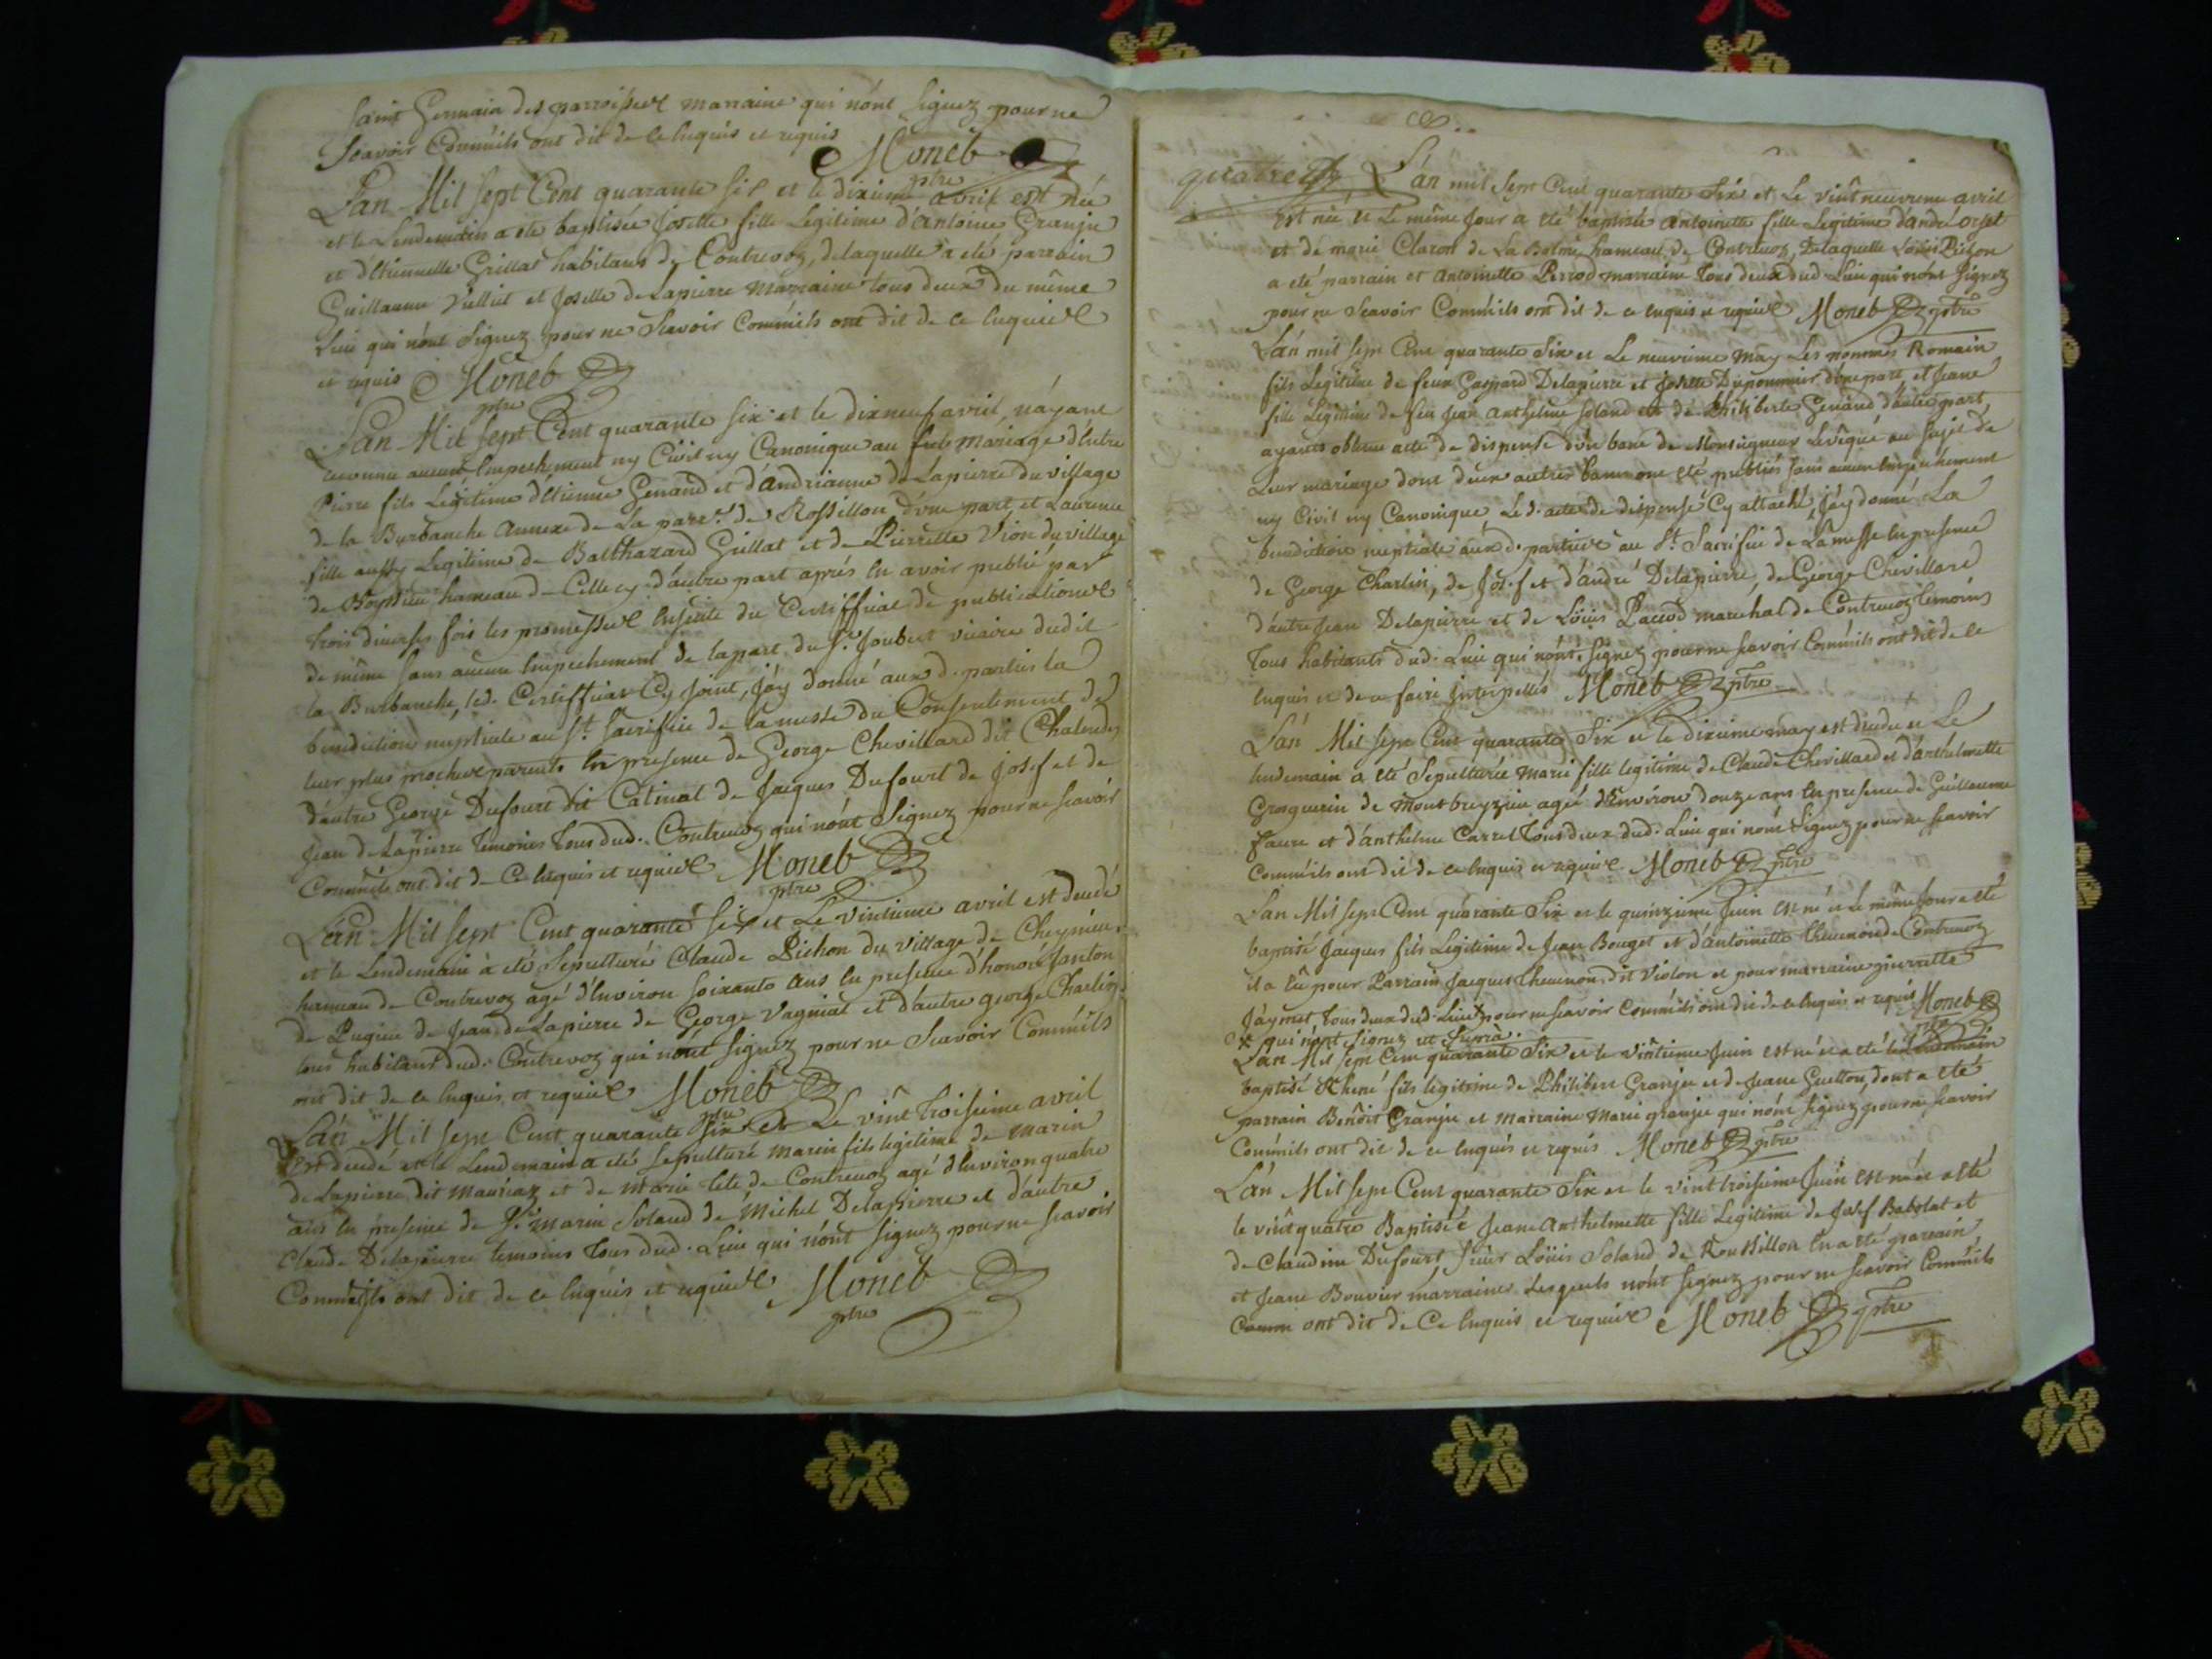 saint Germain des parroisses et marraine qui nónt signez pour ne
Scavoir Comm'ils ont dit de ce Enquis et requis Moneb
ptre
L'an Mil sept Cent quarante six et le dixieme avril est née
et le Lendemain a eté baptisée Josette fille Legitime d'Antoine Granju
et d'Etiennette Grillat habitans de Contrevoz, de laquelle a eté parrain
Guillaume Vulliet et Josette de Lapierre Marraine tous deux du même
Lieu qui nónt Signez pour ne Scavoir Comm'ils ont dit de ce Enquis
et requis Moneb
ptre
L'an Mil sept Cent quarante six et le dix neuf avril, náyant
reconnu aucun Empechement ny Civil ny Canonique au mariage d'Entre
Pierre fils Legitime d'Etienne Genand et d'andrianne de Lapierre du village
de la Burbanche annexe de La parr.e de Rossillon d'une part, et Laurence
fille aussy Legitime de Balthazard Grillat et de Pierrette Vion du village
de hameau de d'autre part aprés En avoir publié par
trois diverses fois les promesses Ensuite du Certifficat de publications
de même sans aucun Empechement de la part du Sr. Joubert vicaire dudit
la Burbanche, led. Certifficat Cy Joint, J'ay donné aux d. parties la
benediction nuptiale au St. Sacrifice de la messe du Consentement de
leur plus proches parents En presence de George Chevillard dit
d'autre George Dufourt dit Catinat de Jacques Dufourt de Josef et de
Jean de Lapierre temoins tous dud. Contrevoz qui nónt Signez pour ne scavoir
Comm'ils ont dit de Ce Enquis et requis Moneb
ptre
L'an Mil sept Cent quarante six et Le vintieme avril est decedé
et le Lendemain à eté Sepulturé Claude Pichon du village de Cheymieu
hameau de Contrevoz agé d'Environ soixante ans En presence d'honoré
de Pugieu de Jean de Lapierre de George Vagniat et d'autre george Charlin
tous habitans dud. Contrevoz qui nónt signez pour ne Scavoir Comm'ils
ont dit de ce Enquis et requis Moneb
ptre
L'an Mil sept Cent quarante six et Le vint troisieme avril
est decedé et le Lendemain a eté sepulturé marin fils legitime de marin
de Lapierre dit et de marie de Contrevoz agé d'Environ quatre
ans En presence de Sr. marin Soland de Michel Delapierre et d'autre
Claude Delapierre temoins tous dud. Lieu qui nónt signez pour ne scavoir
Comm'ils ont dit de ce Enquis et requis Moneb
ptre
quatre L'an mil Sept Cent quarante six et Le vint neuvieme avril
est née et Le même Jour a eté baptisée Antoinette fille Legitime d'andré orset
et de marie Claron de La Balme hameau de Contrevoz, De laquelle Loüis Pichon
a eté parrain et Antoinette Perrod marraine tous deux dud. Lieu qui nónt signez
pour ne Scavoir Comm'ils ont dit de ce enquis et requis Moneb ptre
L'an mil sept Cent quarante Six et Le neuvieme may Les nommés Romain
fils Legitime de feux Gaspard Delapierre et Josette Duponmier d'une part, et Jeane
fille Legitime de feu Jean anthelme soland et de Philiberte Genand d'autre part
ayants obtenu acte de dispense d'un banc de Monseigneur Levêque au sujet de
Leur mariage dont deux autres bancs ont eté publiés sans aucun empechement
ny Civil ny Canonique Le d. acte de dispense Cy attaché, J'ay donné La
benediction nuptiale aux d. parties au St. Sacrifice de La messe En presence
de George Charlin, de Josef et d'andré Delapierre, de George Chevillard
d'autre Jean Delapierre et de Loüis Paccod marechal de Contrevoz temoins
tous habitants dud. Lieu qui nónt signez pour ne scavoir Comm'ils ont dit de ce
enquis et de ce faire Interpellés Moneb ptre
L'an Mil sept Cent quarante Six et le dixieme may est decedée et Le
lendemain a eté Sepulturée Marie fille legitime de Claude Chevillard et d'anthelmette
Grosguerin de montbreyzieu agée d'Environ douze ans En presence de Guillaume
Faure et d'anthelme Carrel tous deux dud. Lieu qui nónt Signez pour ne scavoir
Comm'ils ont dit de ce Enquis et requis Moneb ptre
L'an Mil sept Cent quarante Six et le quinzieme Juin est né et le même Jour a eté
baptisé Jacques fils Legitime de Jean Bouget et d'antoinette Thevenon de Contrevoz
il a eu pour Parrain Jacques Thevenon dit Violon et pour marraine pierrette
Jaymet tous deux dud. Lieu pour ne scavoir Comm'ils ont dit de ce enquis et requis Moneb
ptre
* qui nónt signez ut Supra.
L'an Mil sept Cent quarante Six et le vintieme Juin est né et a eté le Lendemain
baptisé fils legitime de Philibert Granju et de Jeane Guetton, dont a eté
parrain Benôist Granju et marraine Marie granju qui nónt signez pour ne scavoir
Comm'ils ont dit de ce Enquis et requis Moneb ptre
L'an Mil sept Cent quarante Six et le vint troisieme Juin est née et a eté
le vint quatre Baptisée Jeane Anthelmette fille Legitime de Josef Babolat et
de Claudine Dufourt, Sieur Loüis Soland de Roussillon En a eté parrain
et Jeane Bouvier marraine Lesquels nónt signez pour ne scavoir Comm'ils
Comm ont dit de Ce Enquis et requis Moneb ptre